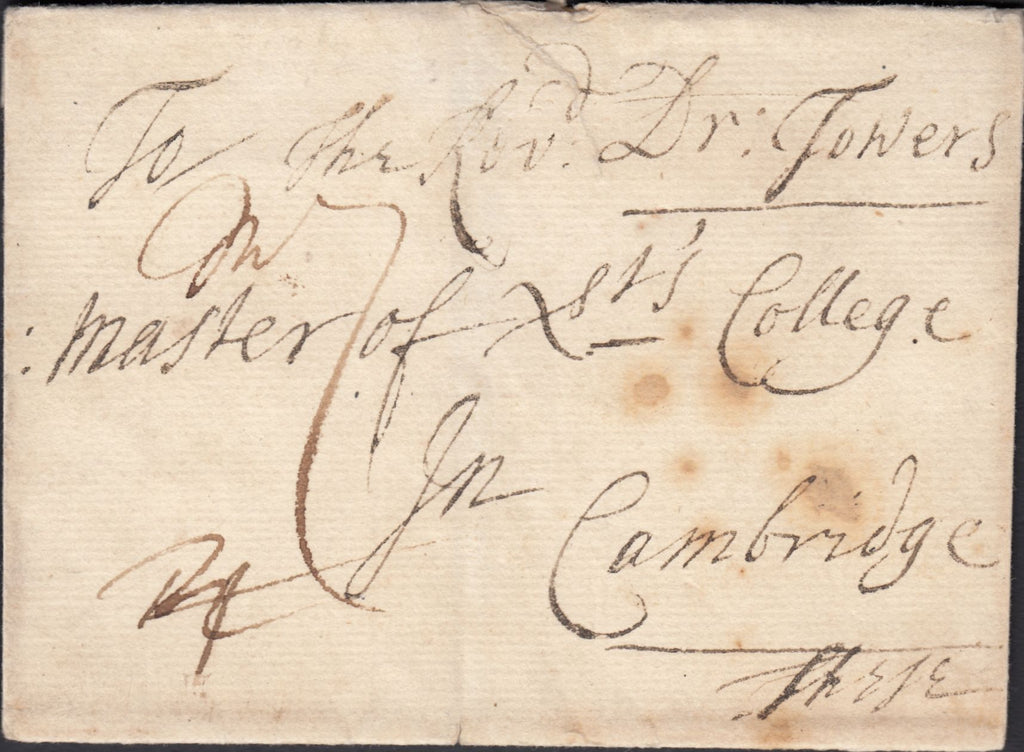 To the Revd. Dr: Towers
: Master of Xsts College
In
Cambridge
These